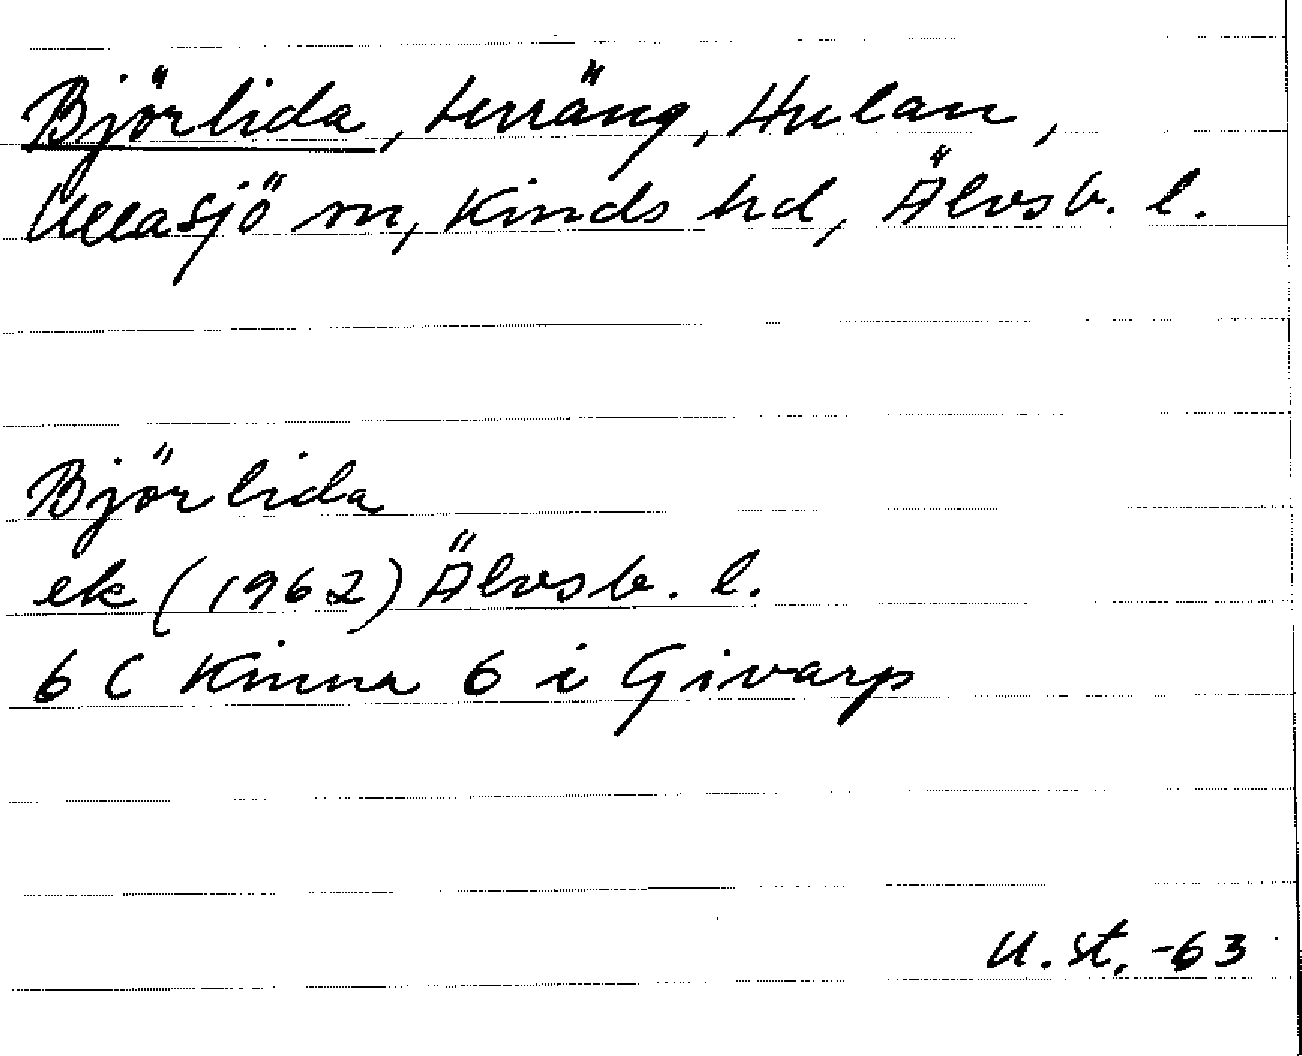 Björlida, terräng, Hulan,
Ullasjö sn, Kinds hd, Älvsb. l.
Björlida
ek (1962) Älvsb. l.
6 C Kinna 6 i Givarp
U. St, -63